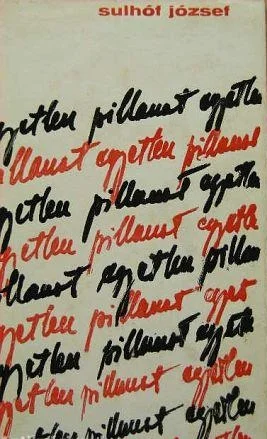 sulhóf józsef
gyetlen pillanat egyetlen
illanat egyetlen pillanat
gyetlen pillanat egyetlen
yetlen pillanat egyetle
illanat egyetlen pillan
gyetlen pillanat egyet
gyetlen pillanat egyetle
yetlen pillanat egyetlen
pillanat egyetlen
yetlen pillanat egyetlen